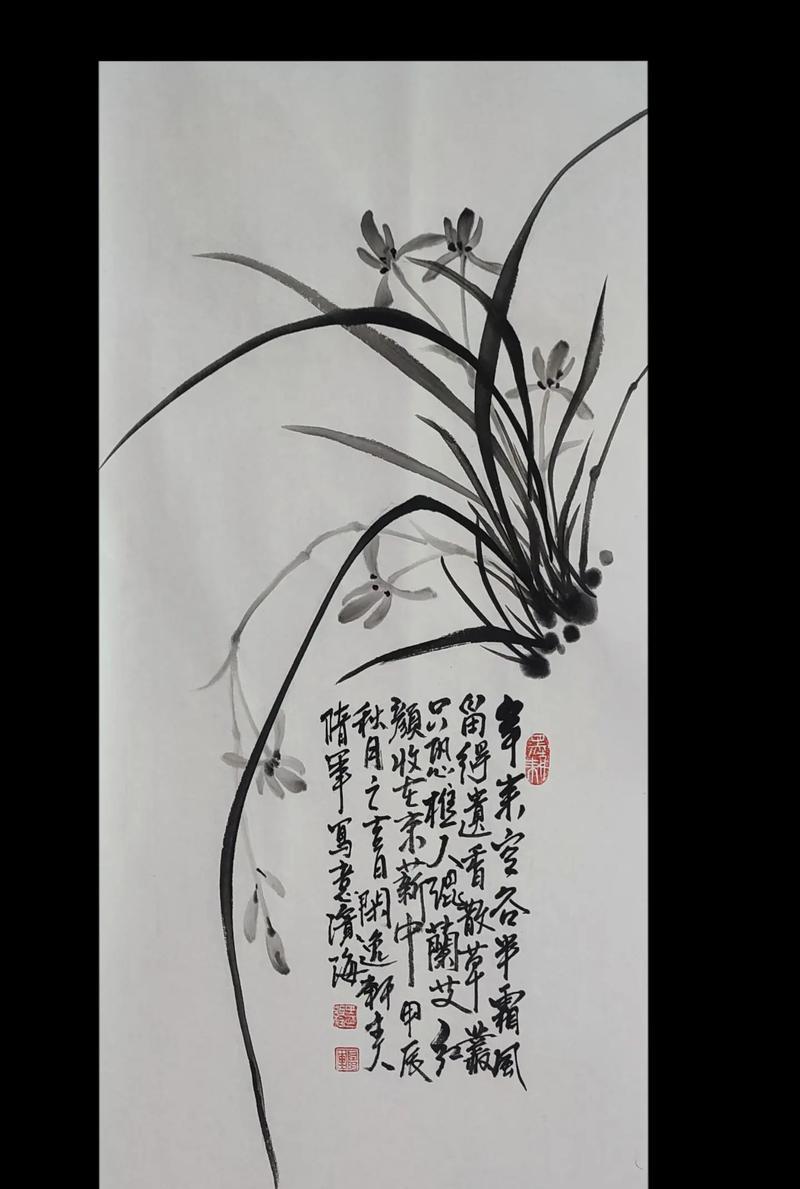 年来空谷半霜風
留得遺香散草叢
只恐樵人混蘭艾紅
顏收在束薪中甲辰
秋月之吉日閑逸軒主人
隋軍寫意濱海